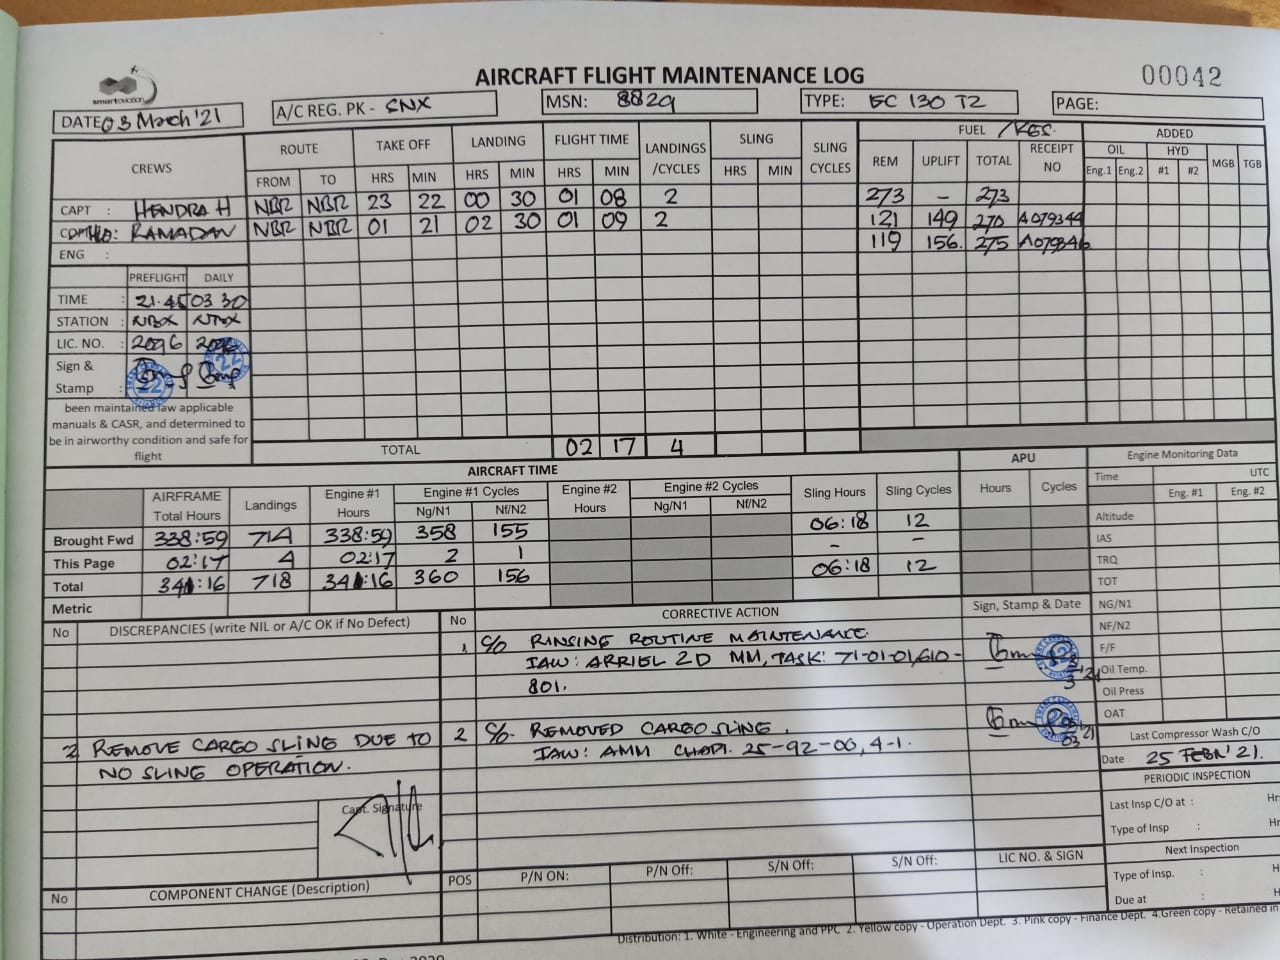 smartaviation
AIRCRAFT FLIGHT MAINTENANCE LOG
00042
DATE 03 March '21
A/C REG. PK - SNX
MSN: 8829
TYPE: EC 130 T2
PAGE:
CREWS ROUTE TAKE OFF LANDING FLIGHT TIME LANDINGS /CYCLES SLING SLING CYCLES FUEL /KGS. ADDED
FROM TO HRS MIN HRS MIN HRS MIN HRS MIN REM UPLIFT TOTAL RECEIPT NO OIL HYD MGB TGB
Eng.1 Eng.2 #1 #2
CAPT : HENDRA H NBR NBR 23 22 00 30 01 08 2 273 - 273
RAMADAN NBR NBR 01 21 02 30 01 09 2 121 149 270 A079344
ENG : 119 156. 275 A079346
PREFLIGHT DAILY
TIME : 21.45 03 30
STATION :
LIC. NO. : 2096 2096
Sign &
Stamp :
been maintained law applicable
manuals & CASR, and determined to
be in airworthy condition and safe for
flight
TOTAL 02 17 4
AIRCRAFT TIME APU Engine Monitoring Data
AIRFRAME Total Hours Landings Engine #1 Hours Engine #1 Cycles Engine #2 Hours Engine #2 Cycles Sling Hours Sling Cycles Hours Cycles Time UTC
Ng/N1 Nf/N2 Ng/N1 Nf/N2 Eng. #1 Eng. #2
Brought Fwd 338:59 714 338:59 358 155 06:18 12
This Page 02:17 4 02:17 2 1 - -
Total 341:16 718 341:16 360 156 06:18 12
Metric
Altitude
IAS
TRQ
TOT
NG/N1
NF/N2
F/F
Oil Temp.
Oil Press
OAT
No DISCREPANCIES (write NIL or A/C OK if No Defect) No CORRECTIVE ACTION Sign, Stamp & Date
1 C/O RINSING ROUTINE MAINTENANCE.
IAW: ARRIEL 2D MM, TASK: 71-01-01,610-
801.
2 REMOVE CARGO SLING DUE TO 2 C/O REMOVED CARGO SLING.
NO SLING OPERATION. IAW: AMM CHAPT. 25-92-00, 4-1.
Capt. Signature
Last Compressor Wash C/O
Date 25 FEBR' 21.
PERIODIC INSPECTION
Last Insp C/O at : Hr
Type of Insp : Hr
Next Inspection
Type of Insp. : H
Due at : H
No COMPONENT CHANGE (Description) POS P/N ON: P/N Off: S/N Off: S/N Off: LIC NO. & SIGN
Distribution: 1. White - Engineering and PPC 2. Yellow copy - Operation Dept. 3. Pink copy - Finance Dept. 4.Green copy - Retained in